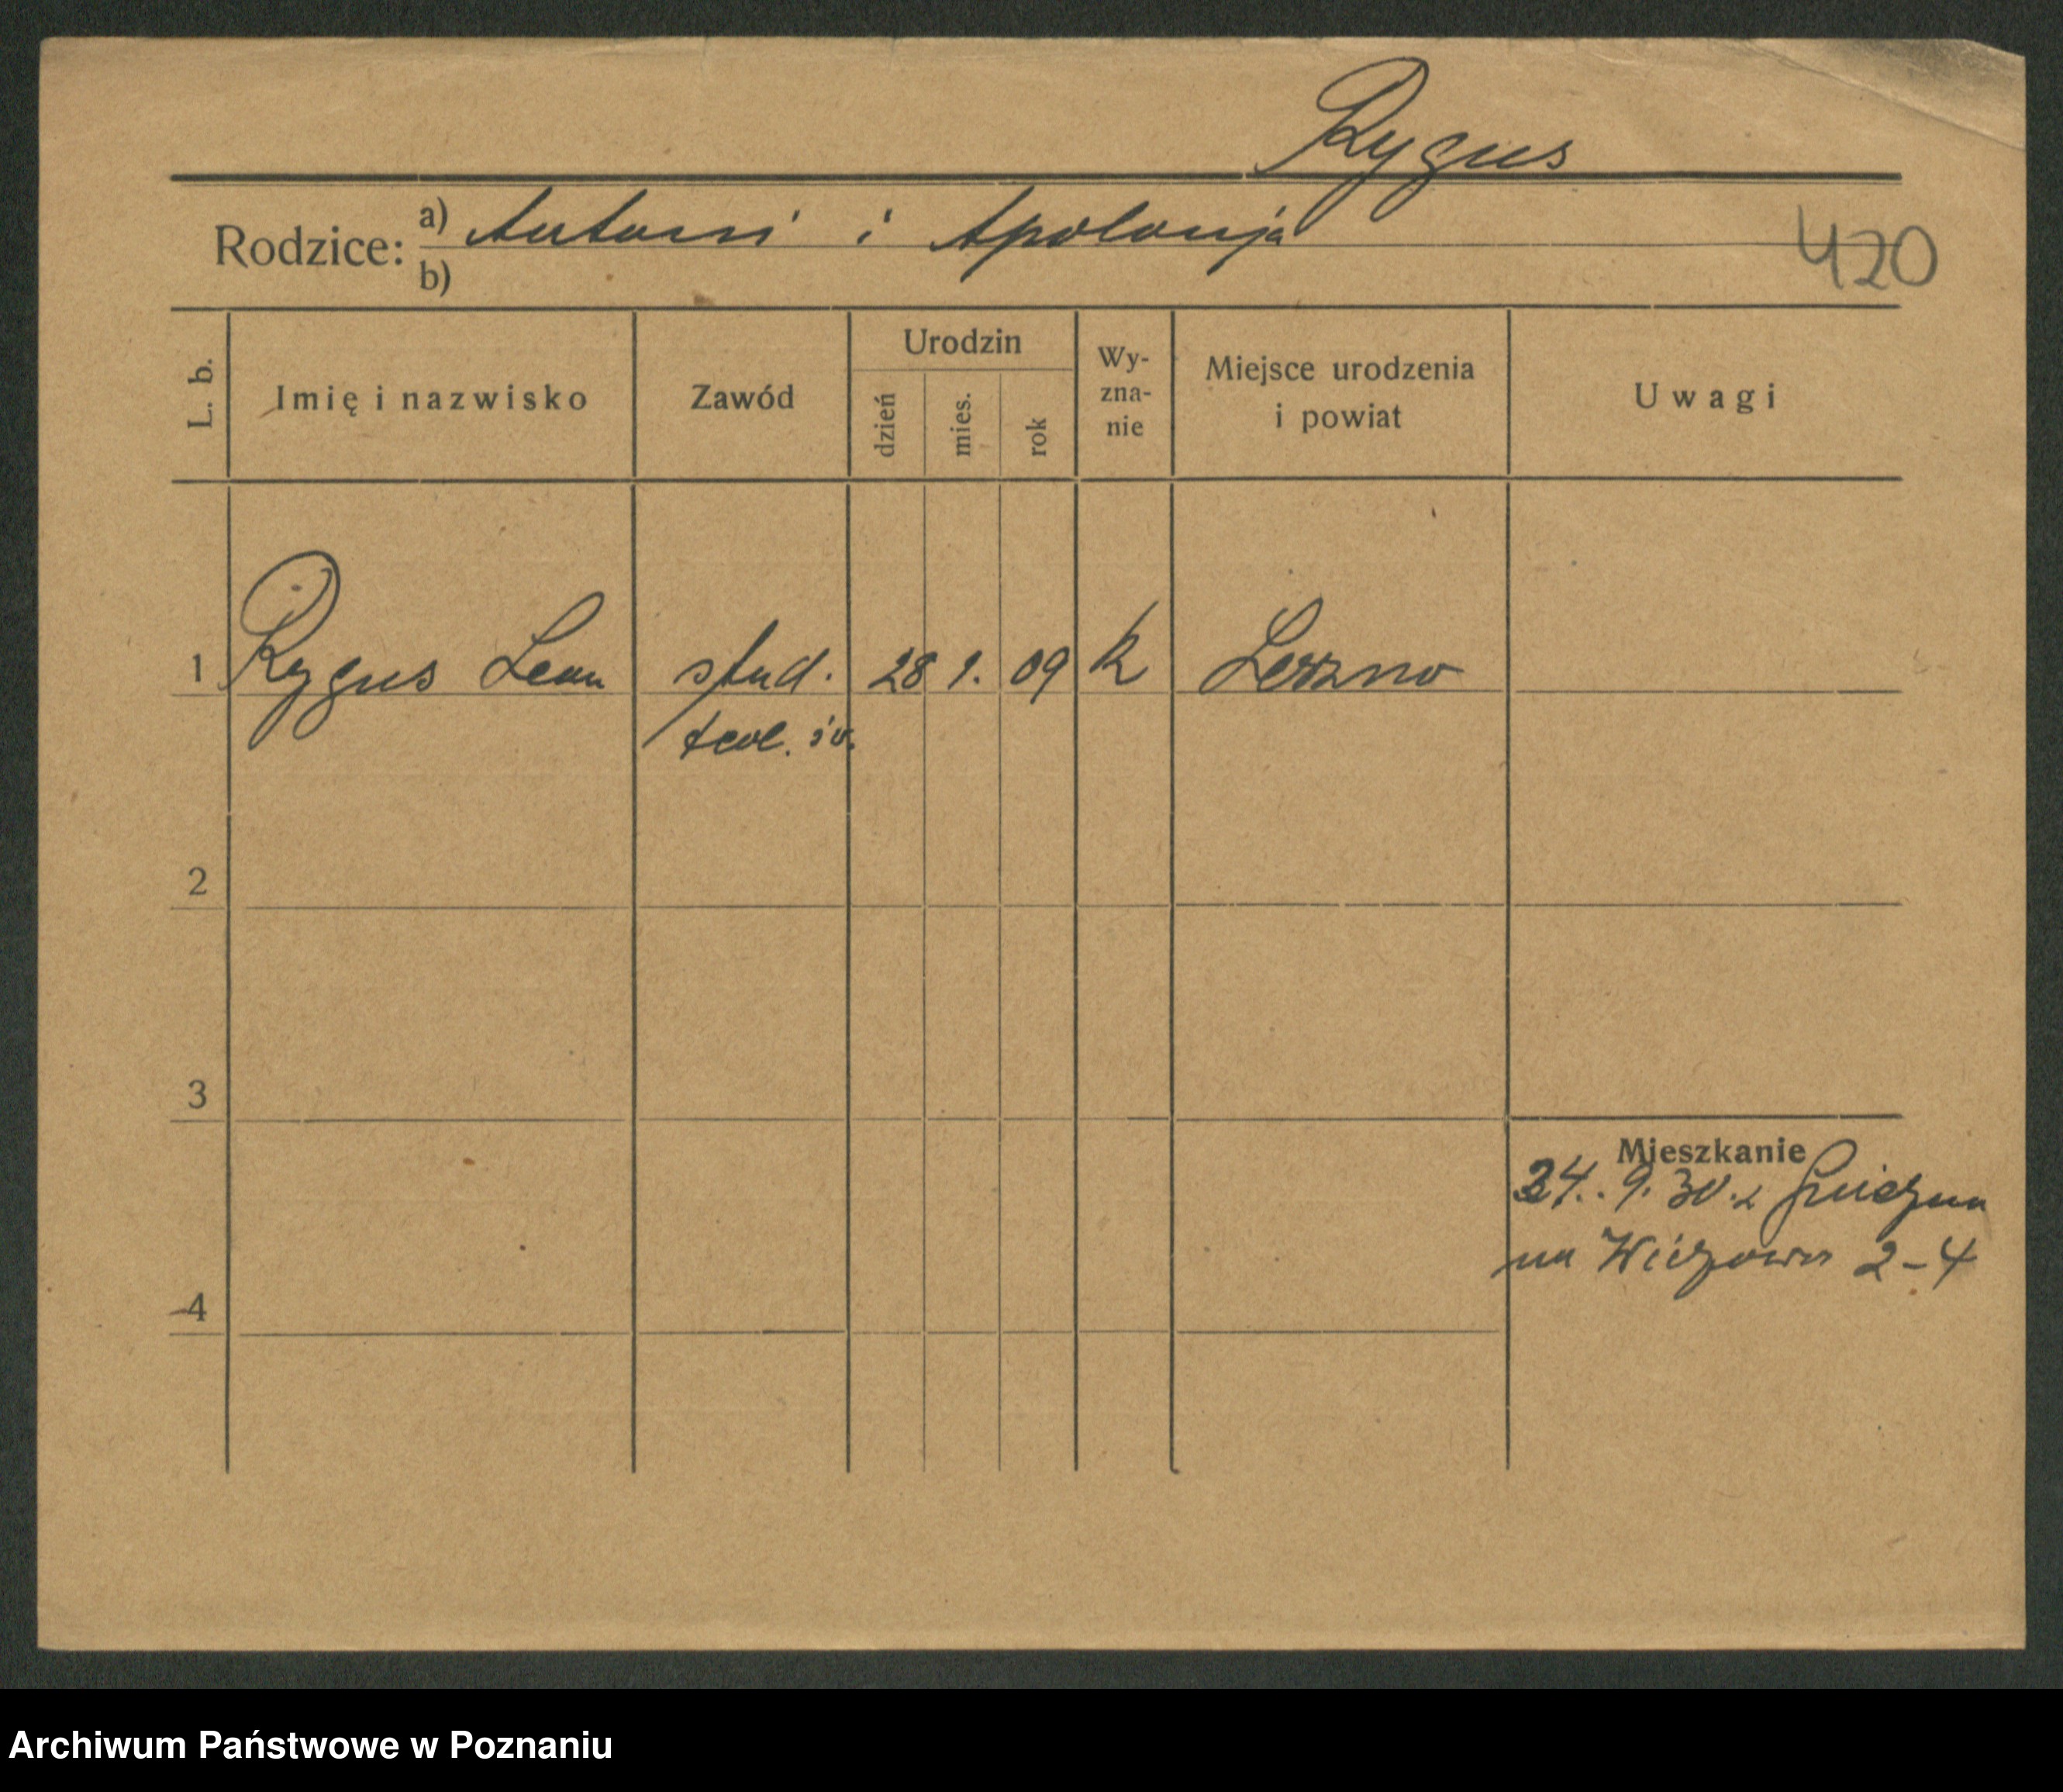 Rygus
Rodzice: a) Antoni i Apolonja
b)
420
L. b. Imię i nazwisko Zawód Urodzin dzień mies. rok Wy-zna-nie Miejsce urodzenia i powiat Uwagi
1 Rygus Leon stud. 28 9. 09 k Leszno
teol.
2
3
Mieszkanie
24. 9. 30. z Gniezna
na Wieżowa 2-4
4
Archiwum Państwowe w Poznaniu